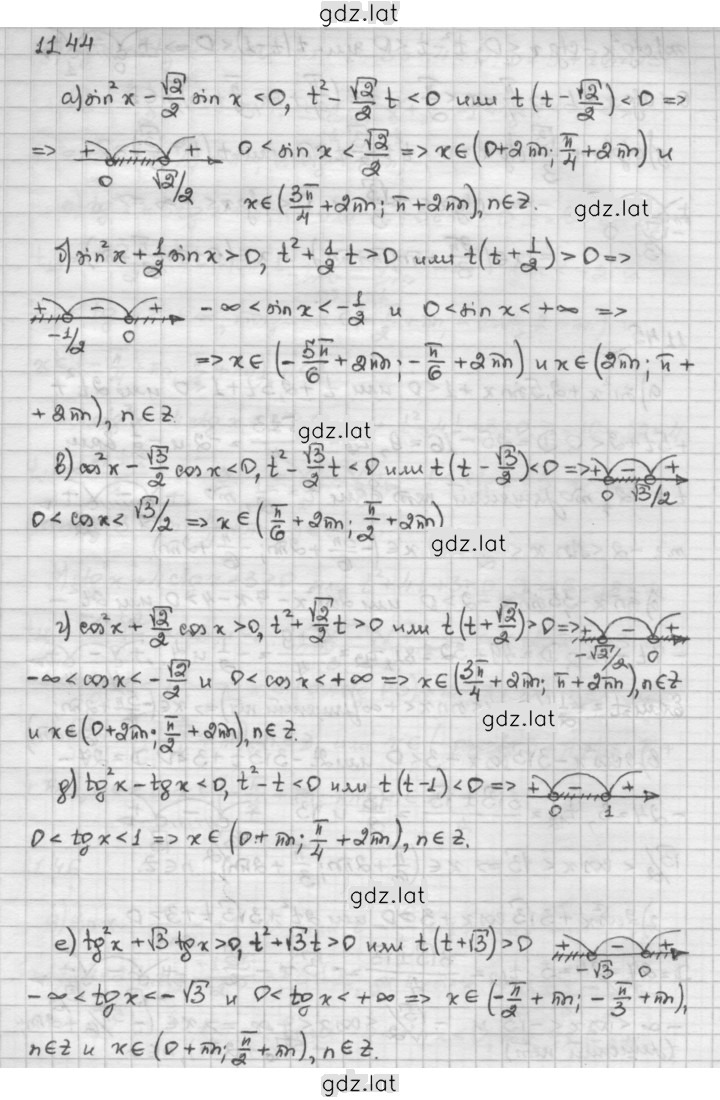 gdz.lat
1144
а) sin² x - √2/2 sin x < 0, t² - √2/2 t < 0 или t(t - √2/2) < 0 =>
=> + - + 0 < sin x < √2/2 => x∈(0+2πn; π/4+2πn) и
0 √2/2
x∈(3π/4+2πn; π+2πn), n∈Z.
gdz.lat
б) sin² x + 1/2 sin x > 0, t² + 1/2 t > 0 или t(t + 1/2) > 0 =>
+ - + -∞ < sin x < -1/2 и 0 < sin x < +∞ =>
-1/2 0
=> x∈(-5π/6+2πn; -π/6+2πn) и x∈(2πn; π+
+2πn), n∈Z.
gdz.lat
в) cos² x - √3/2 cos x < 0, t² - √3/2 t < 0 или t(t - √3/2) < 0 => + - +
0 √3/2
0 < cos x < √3/2 => x∈(π/6+2πn; π/2+2πn)
gdz.lat
г) cos² x + √2/2 cos x > 0, t² + √2/2 t > 0 или t(t + √2/2) > 0 => + - +
-√2/2 0
-∞ < cos x < -√2/2 и 0 < cos x < +∞ => x∈(3π/4+2πn; π+2πn), n∈Z
и x∈(0+2πn; π/2+2πn), n∈Z.
gdz.lat
д) tg² x - tg x < 0, t² - t < 0 или t(t-1) < 0 => + - +
0 1
0 < tg x < 1 => x∈(0+πn; π/4+2πn), n∈Z.
gdz.lat
е) tg² x + √3 tg x > 0, t² + √3 t > 0 или t(t+√3) > 0 + - +
-√3 0
-∞ < tg x < -√3 и 0 < tg x < +∞ => x∈(-π/2+πn; -π/3+πn),
n∈Z и x∈(0+πn; π/2+πn), n∈Z.
gdz.lat